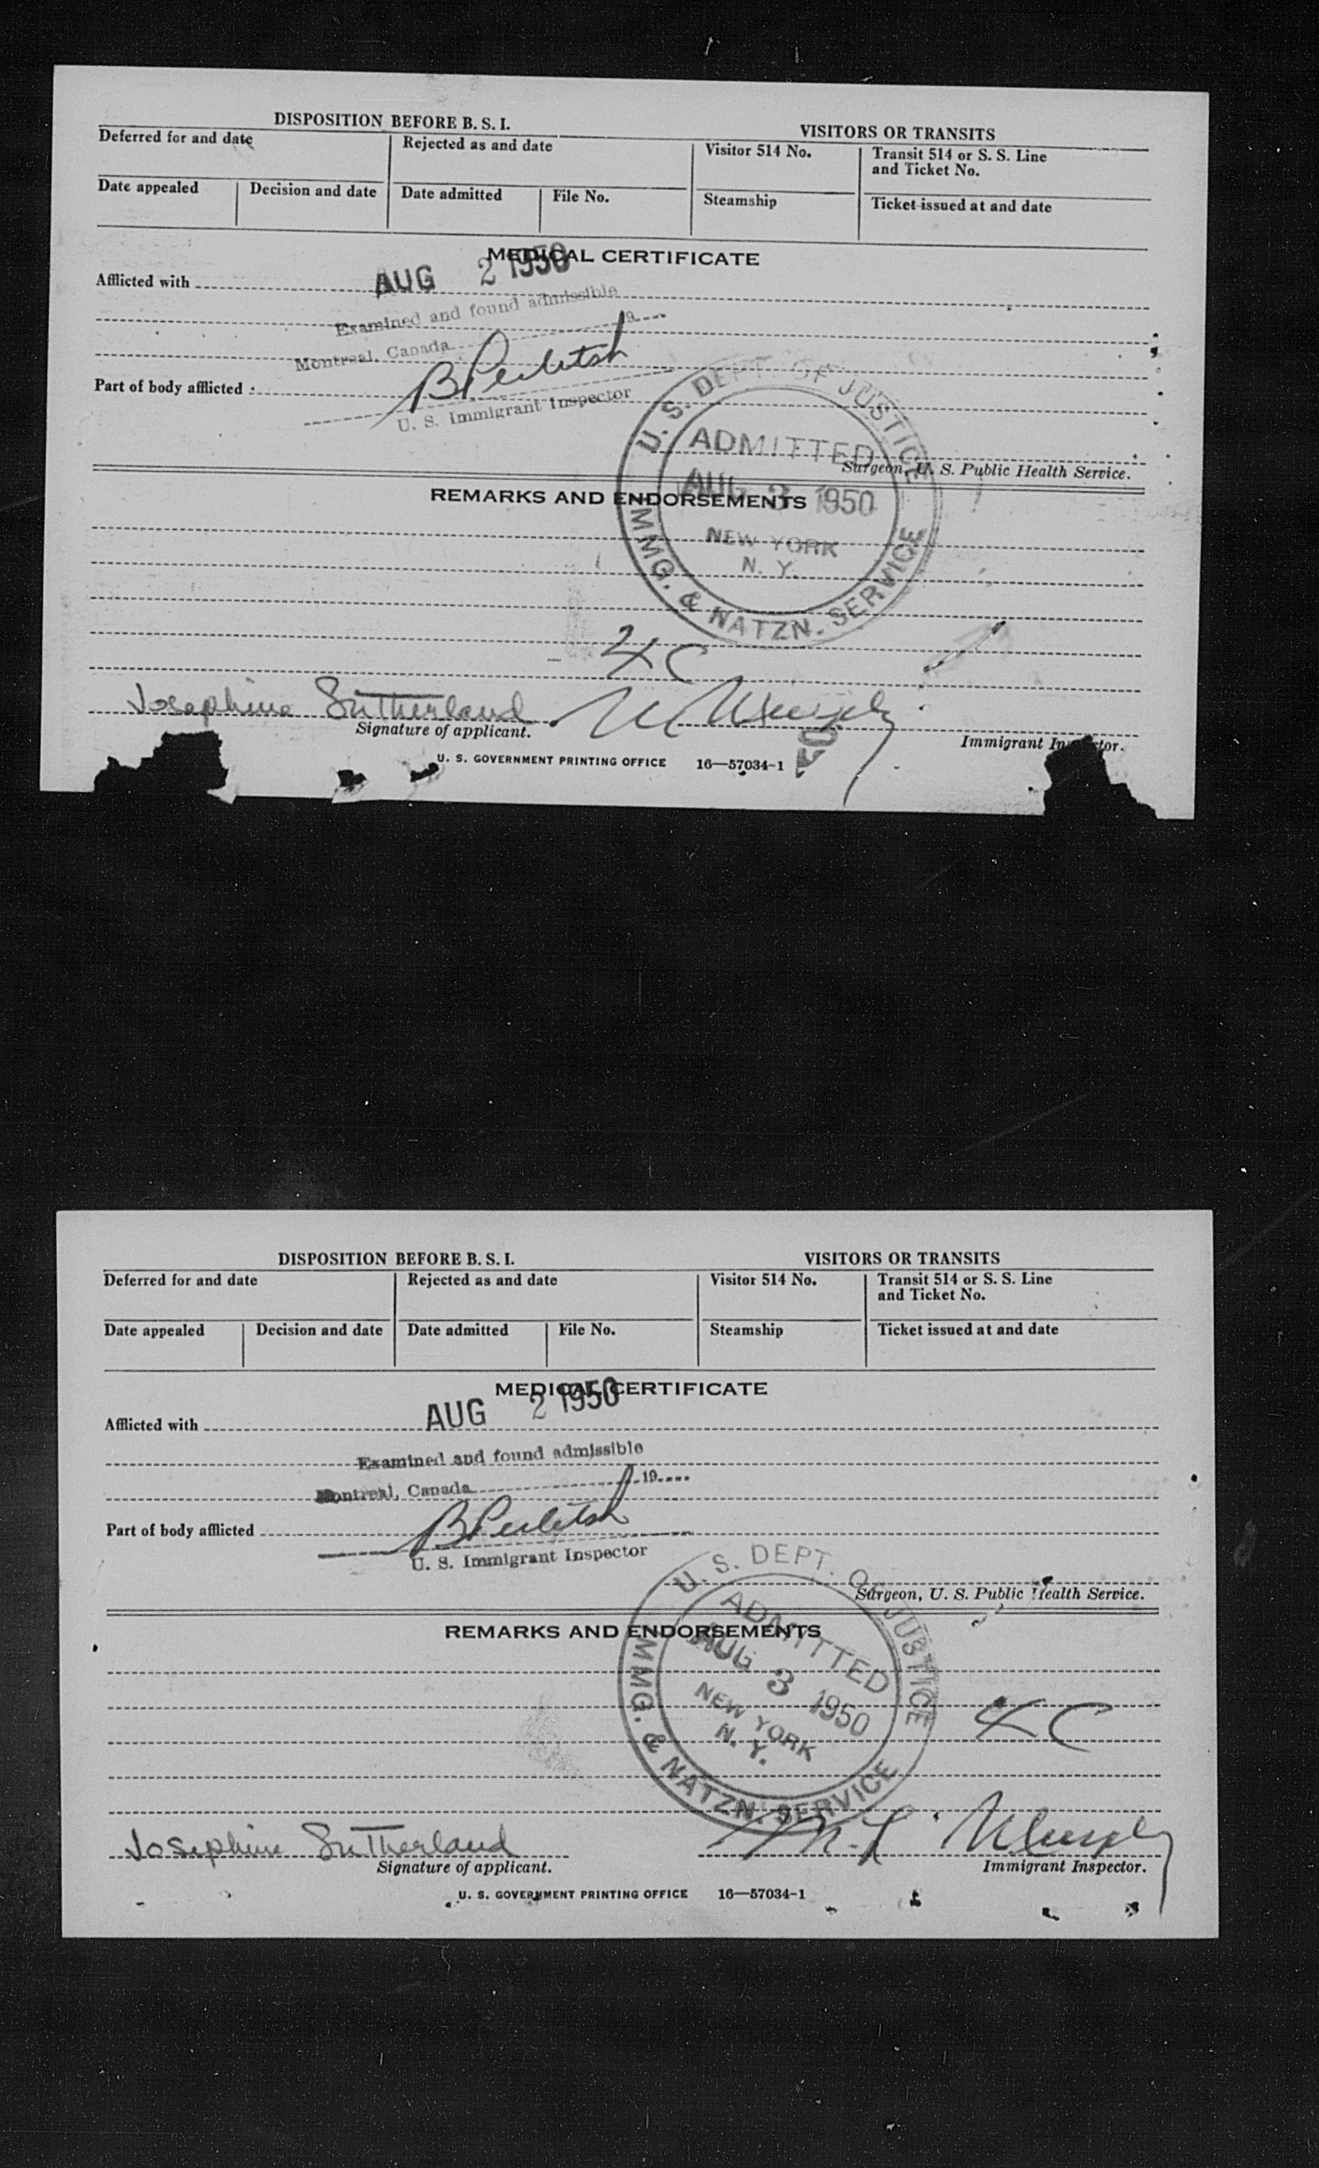 DISPOSITION BEFORE B. S. I.
VISITORS OR TRANSITS
Deferred for and date
Rejected as and date
Visitor 514 No.
Transit 514 or S. S. Line
and Ticket No.
Date appealed
Decision and date
Date admitted
File No.
Steamship
Ticket issued at and date
MEDICAL CERTIFICATE
AUG 2 1950
Afflicted with
Examined and found admissible
Montreal, Canada 19
Part of body afflicted
U. S. Immigrant Inspector
U. S. DEPT. OF JUSTICE
ADMITTED
Surgeon, U. S. Public Health Service.
AUG 3 1950
REMARKS AND ENDORSEMENTS
NEW YORK
N. Y.
IMMG. & NATZN. SERVICE
4C
Josephine Sutherland
Signature of applicant.
Immigrant Inspector.
U. S. GOVERNMENT PRINTING OFFICE 16—57034-1
DISPOSITION BEFORE B. S. I.
VISITORS OR TRANSITS
Deferred for and date
Rejected as and date
Visitor 514 No.
Transit 514 or S. S. Line
and Ticket No.
Date appealed
Decision and date
Date admitted
File No.
Steamship
Ticket issued at and date
MEDICAL CERTIFICATE
AUG 2 1950
Afflicted with
Examined and found admissible
Montreal, Canada 19
Part of body afflicted
U. S. Immigrant Inspector
U. S. DEPT. OF JUSTICE
Surgeon, U. S. Public Health Service.
ADMITTED
REMARKS AND ENDORSEMENTS
AUG 3 1950
NEW YORK
N. Y.
IMMG. & NATZN. SERVICE
4C
Josephine Sutherland
M. L. Murphy
Signature of applicant.
Immigrant Inspector.
U. S. GOVERNMENT PRINTING OFFICE 16—57034-1